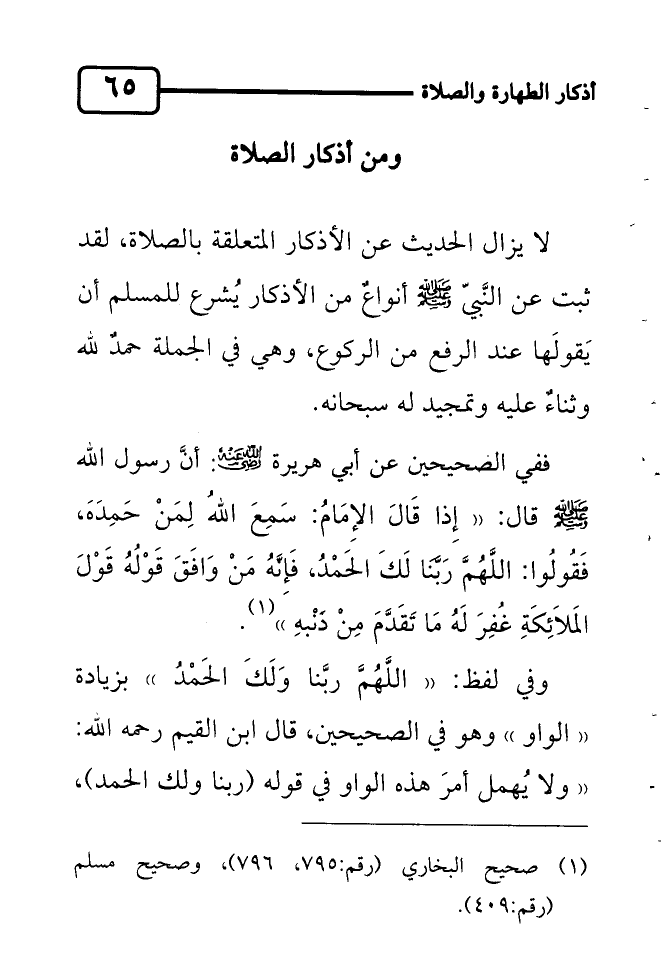 أذكار الطهارة والصلاة ٦٥
ومن أذكار الصلاة
لا يزال الحديث عن الأذكار المتعلقة بالصلاة، لقد
ثبت عن النَّبيّ ﷺ أنواعٌ من الأذكار يُشرع للمسلم أن
يَقولَها عند الرفع من الركوع، وهي في الجملة حمدٌ لله
وثناءٌ عليه وتمجيد له سبحانه.
ففي الصحيحين عن أبي هريرة رضي الله عنه: أنَّ رسول الله
ﷺ قال: « إِذا قَالَ الإِمَامُ: سَمِعَ اللهُ لِمَنْ حَمِدَهَ،
فَقُولُوا: اللَّهُمَّ رَبَّنَا لَكَ الحَمْدُ، فَإِنَّهُ مَنْ وَافَقَ قَوْلُهُ قَوْلَ
المَلاَئِكَةِ غُفِرَ لَهُ مَا تَقَدَّمَ مِنْ ذَنْبِهِ »(١).
وفي لفظ: « اللَّهُمَّ ربَّنا وَلَكَ الحَمْدُ » بزيادة
« الواو » وهو في الصحيحين، قال ابن القيم رحمه الله:
« ولا يُهمل أمرَ هذه الواو في قوله (ربنا ولك الحمد)،
(١) صحيح البخاري (رقم:٧٩٥، ٧٩٦)، وصحيح مسلم
(رقم:٤٠٩).